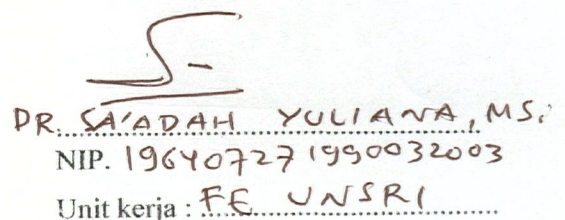 DR. SA'ADAH YULIANA, MSi
NIP. 196407271990032003
Unit kerja : FE UNSRI